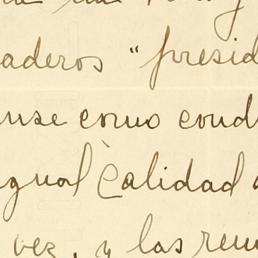 aderos "presid
use como cond
igual calidad
vez, y las rem